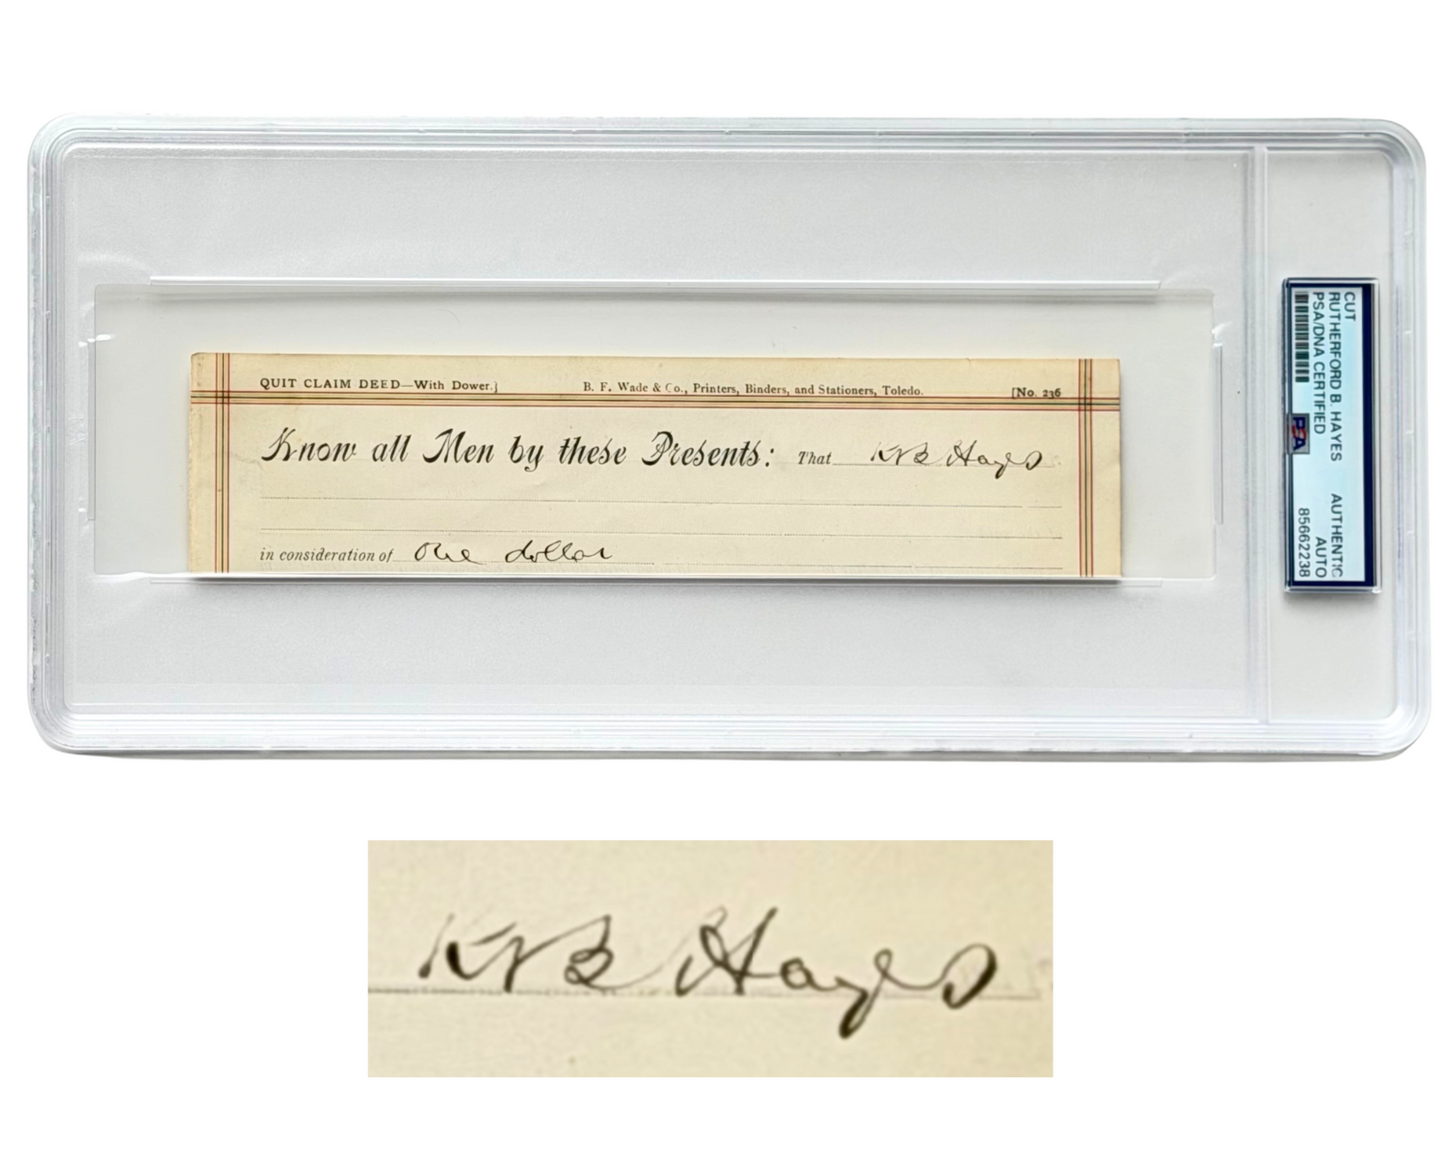 QUIT CLAIM DEED—With Dower.]
B. F. Wade & Co., Printers, Binders, and Stationers, Toledo.
[No. 236
Know all Men by these Presents: That R B Hayes
in consideration of One dollar
CUT
RUTHERFORD B. HAYES
PSA/DNA CERTIFIED
AUTHENTIC
AUTO
85662238
PSA
R B Hayes